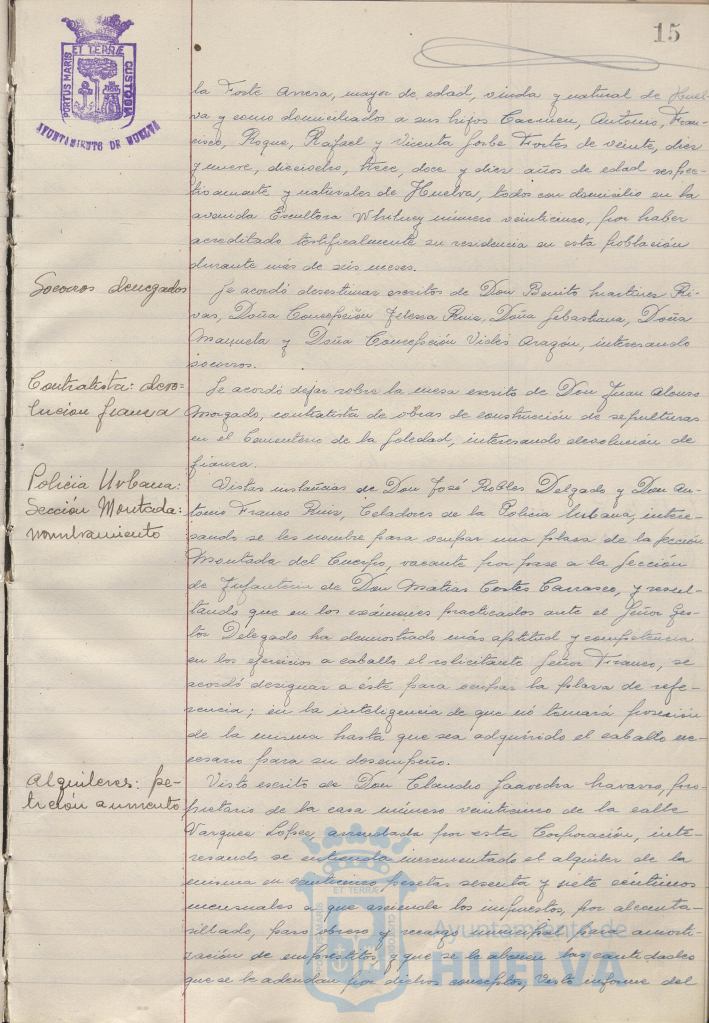 15
PORTUS MARIS ET TERRÆ CUSTODIA
AYUNTAMIENTO DE HUELVA
la Forte Arresa, mayor de edad, viuda y natural de Huel-
va y como domiciliados a sus hijos Carmen, Antonio, Fran-
cisco, Roque, Rafael y Vicenta Fortes de veinte, diez
y nueve, dieciocho, trece, doce y diez años de edad respec-
tivamente y naturales de Huelva, todos con domicilio en la
avenida Escultora Whitney número veinticinco, por haber
acreditado testificalmente su residencia en esta población
durante más de seis meses.
Socorros denegados
Se acordó desestimar escritos de Don Benito Martínez Ri-
vas, Doña Concepción Ruiz, Doña Sebastiana, Doña
Manuela y Doña Concepción Vides Aragón, interesando
socorros.
Contratista: devo-
lución fianza
Se acordó dejar sobre la mesa escrito de Don Juan Alonso
Morgado, contratista de obras de construcción de sepulturas
en el Cementerio de la Soledad, interesando devolución de
fianza.
Policía Urbana:
Sección Montada:
nombramiento
Vistas instancias de Don José Robles Delgado y Don An-
tonio Franco Ruiz, Celadores de la Policía Urbana, intere-
sando se les nombre para ocupar una plaza de la Sección
Montada del Cuerpo, vacante por pase a la Sección
de Infantería de Don Matías Cortés Carrasco, y resul-
tando que en los exámenes practicados ante el Señor Ges-
tor Delegado ha demostrado más aptitud y competencia
en los ejercicios a caballo el solicitante Señor Franco, se
acordó designar a éste para ocupar la plaza de refe-
rencia; en la inteligencia de que no tomará posesión
de la misma hasta que sea adquirido el caballo ne-
cesario para su desempeño.
Alquileres: pe-
tición aumento
Visto escrito de Don Claudio Saavedra Navarro, pro-
pietario de la casa número veinticinco de la calle
Vazquez Lopez, arrendada por esta Corporación, inte-
resando se entienda incrementado el alquiler de la
misma en veinticinco pesetas sesenta y siete céntimos
mensuales a que asciende los impuestos, por alcanta-
rillado, paro obrero y recargo municipal para amorti-
zación de empréstitos, y que se le abonen las cantidades
que se le adeudan por dichos conceptos, Visto informe del
ET TERRÆ
PORTUS MARIS
CUSTODIA
Ayuntamiento de
HUELVA